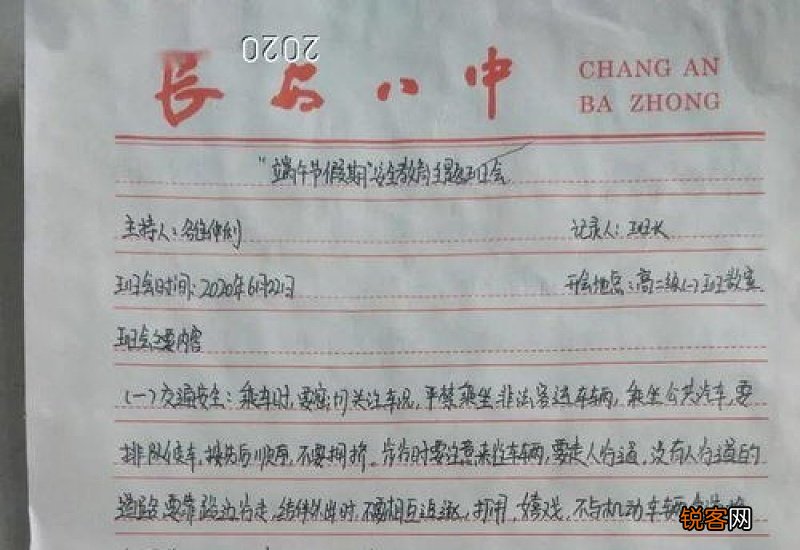 2020
长安八中 CHANG AN
BA ZHONG
"端午节假期"安全教育主题班会
主持人:
记录人:班长
班会时间:2020年6月22日
开会地点:高二级(一)班教室
班会主要内容
(一)交通安全:乘车时,要密切关注车况,严禁乘坐非法客运车辆,乘坐公共汽车,要
排队候车,按先后顺序,不要拥挤。步行时要注意来往车辆,要走人行道,没有人行道的
道路要靠路边行走,结伴外出时,不要相互追逐,打闹,嬉戏,不与机动车辆
锐客网